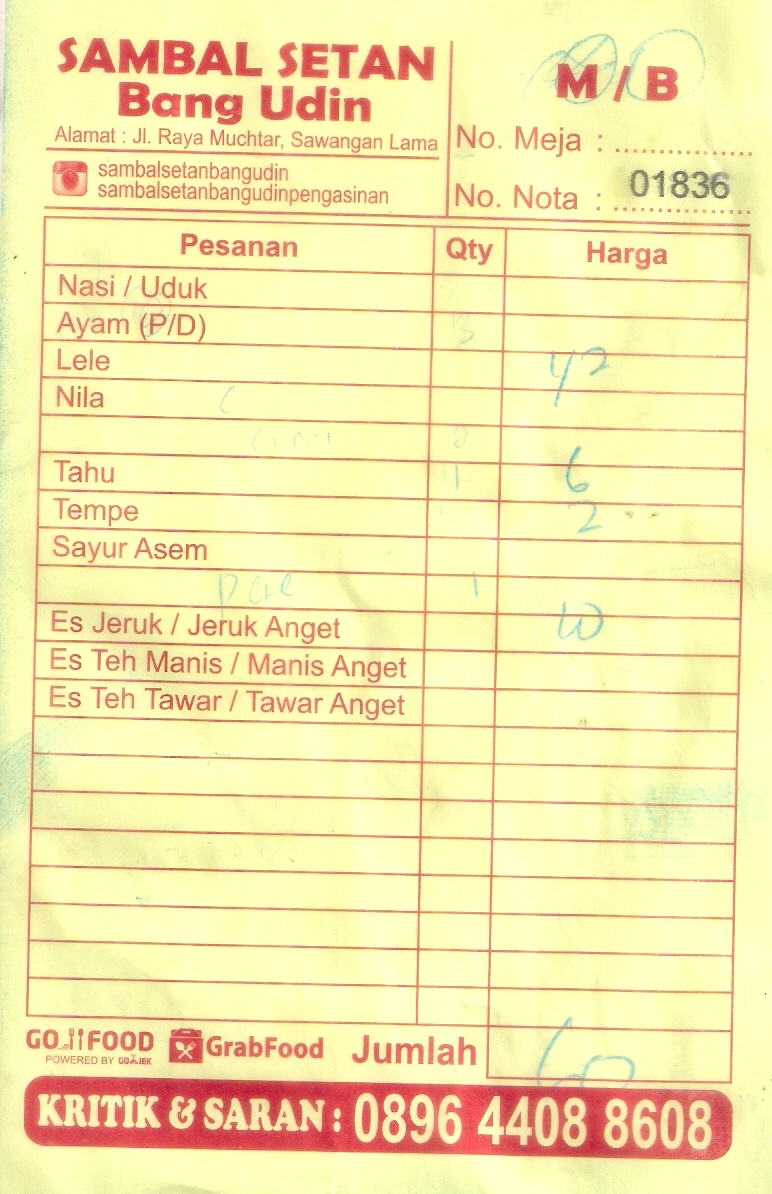 SAMBAL SETAN
Bang Udin
Alamat : Jl. Raya Muchtar, Sawangan Lama
sambalsetanbangudin
sambalsetanbangudinpengasinan
M / B
No. Meja :
No. Nota : 01836
Pesanan Qty Harga
Nasi / Uduk
Ayam (P/D) 3
Lele 42
Nila
Tahu 1 6
Tempe 2
Sayur Asem
1
Es Jeruk / Jeruk Anget 10
Es Teh Manis / Manis Anget
Es Teh Tawar / Tawar Anget
GO FOOD
POWERED BY GOJEK
GrabFood
Jumlah 60
KRITIK & SARAN : 0896 4408 8608